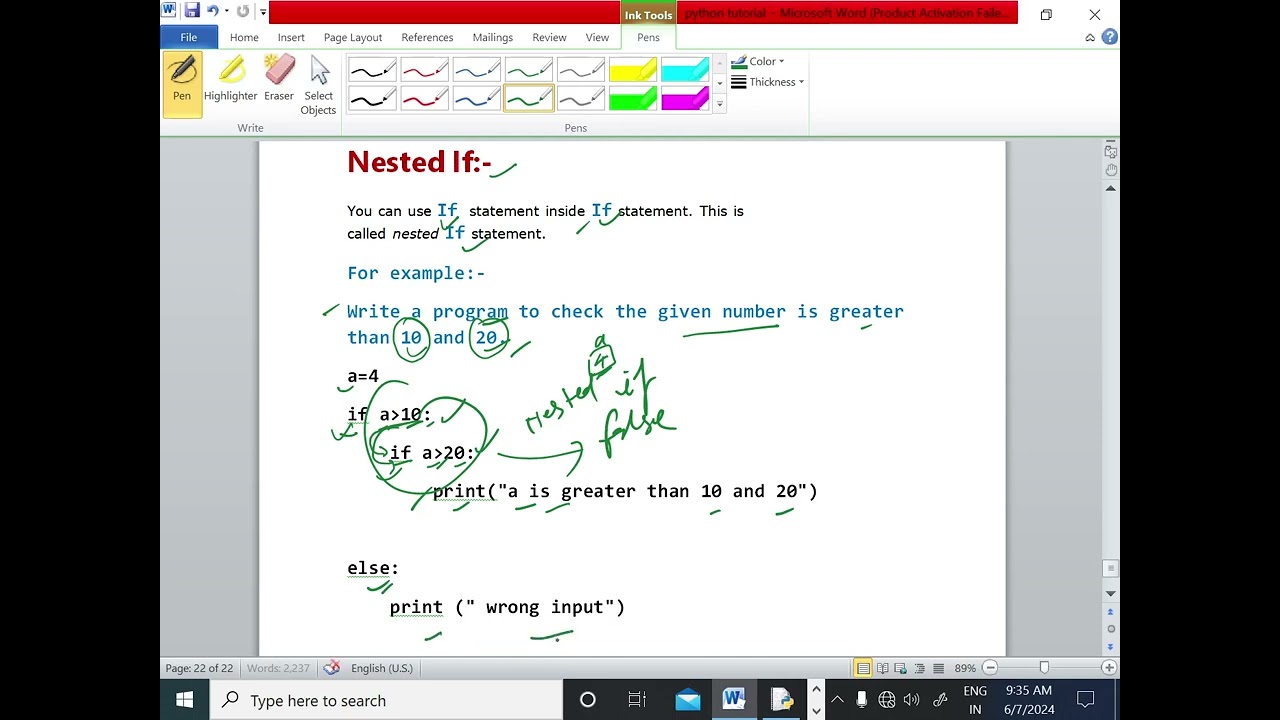 Ink Tools
python tutorial - Microsoft Word (Product Activation Faile...
File Home Insert Page Layout References Mailings Review View Pens
Pen Highlighter Eraser Select Objects
Color
Thickness
Write Pens
Nested If:-
You can use If statement inside If statement. This is
called nested If statement.
For example:-
Write a program to check the given number is greater
than 10 and 20.
a
4
a=4
Nested if
if a>10:
false
if a>20:
print("a is greater than 10 and 20")
else:
print (" wrong input")
Page: 22 of 22 Words: 2,237 English (U.S.) 89%
Type here to search
ENG
IN
9:35 AM
6/7/2024